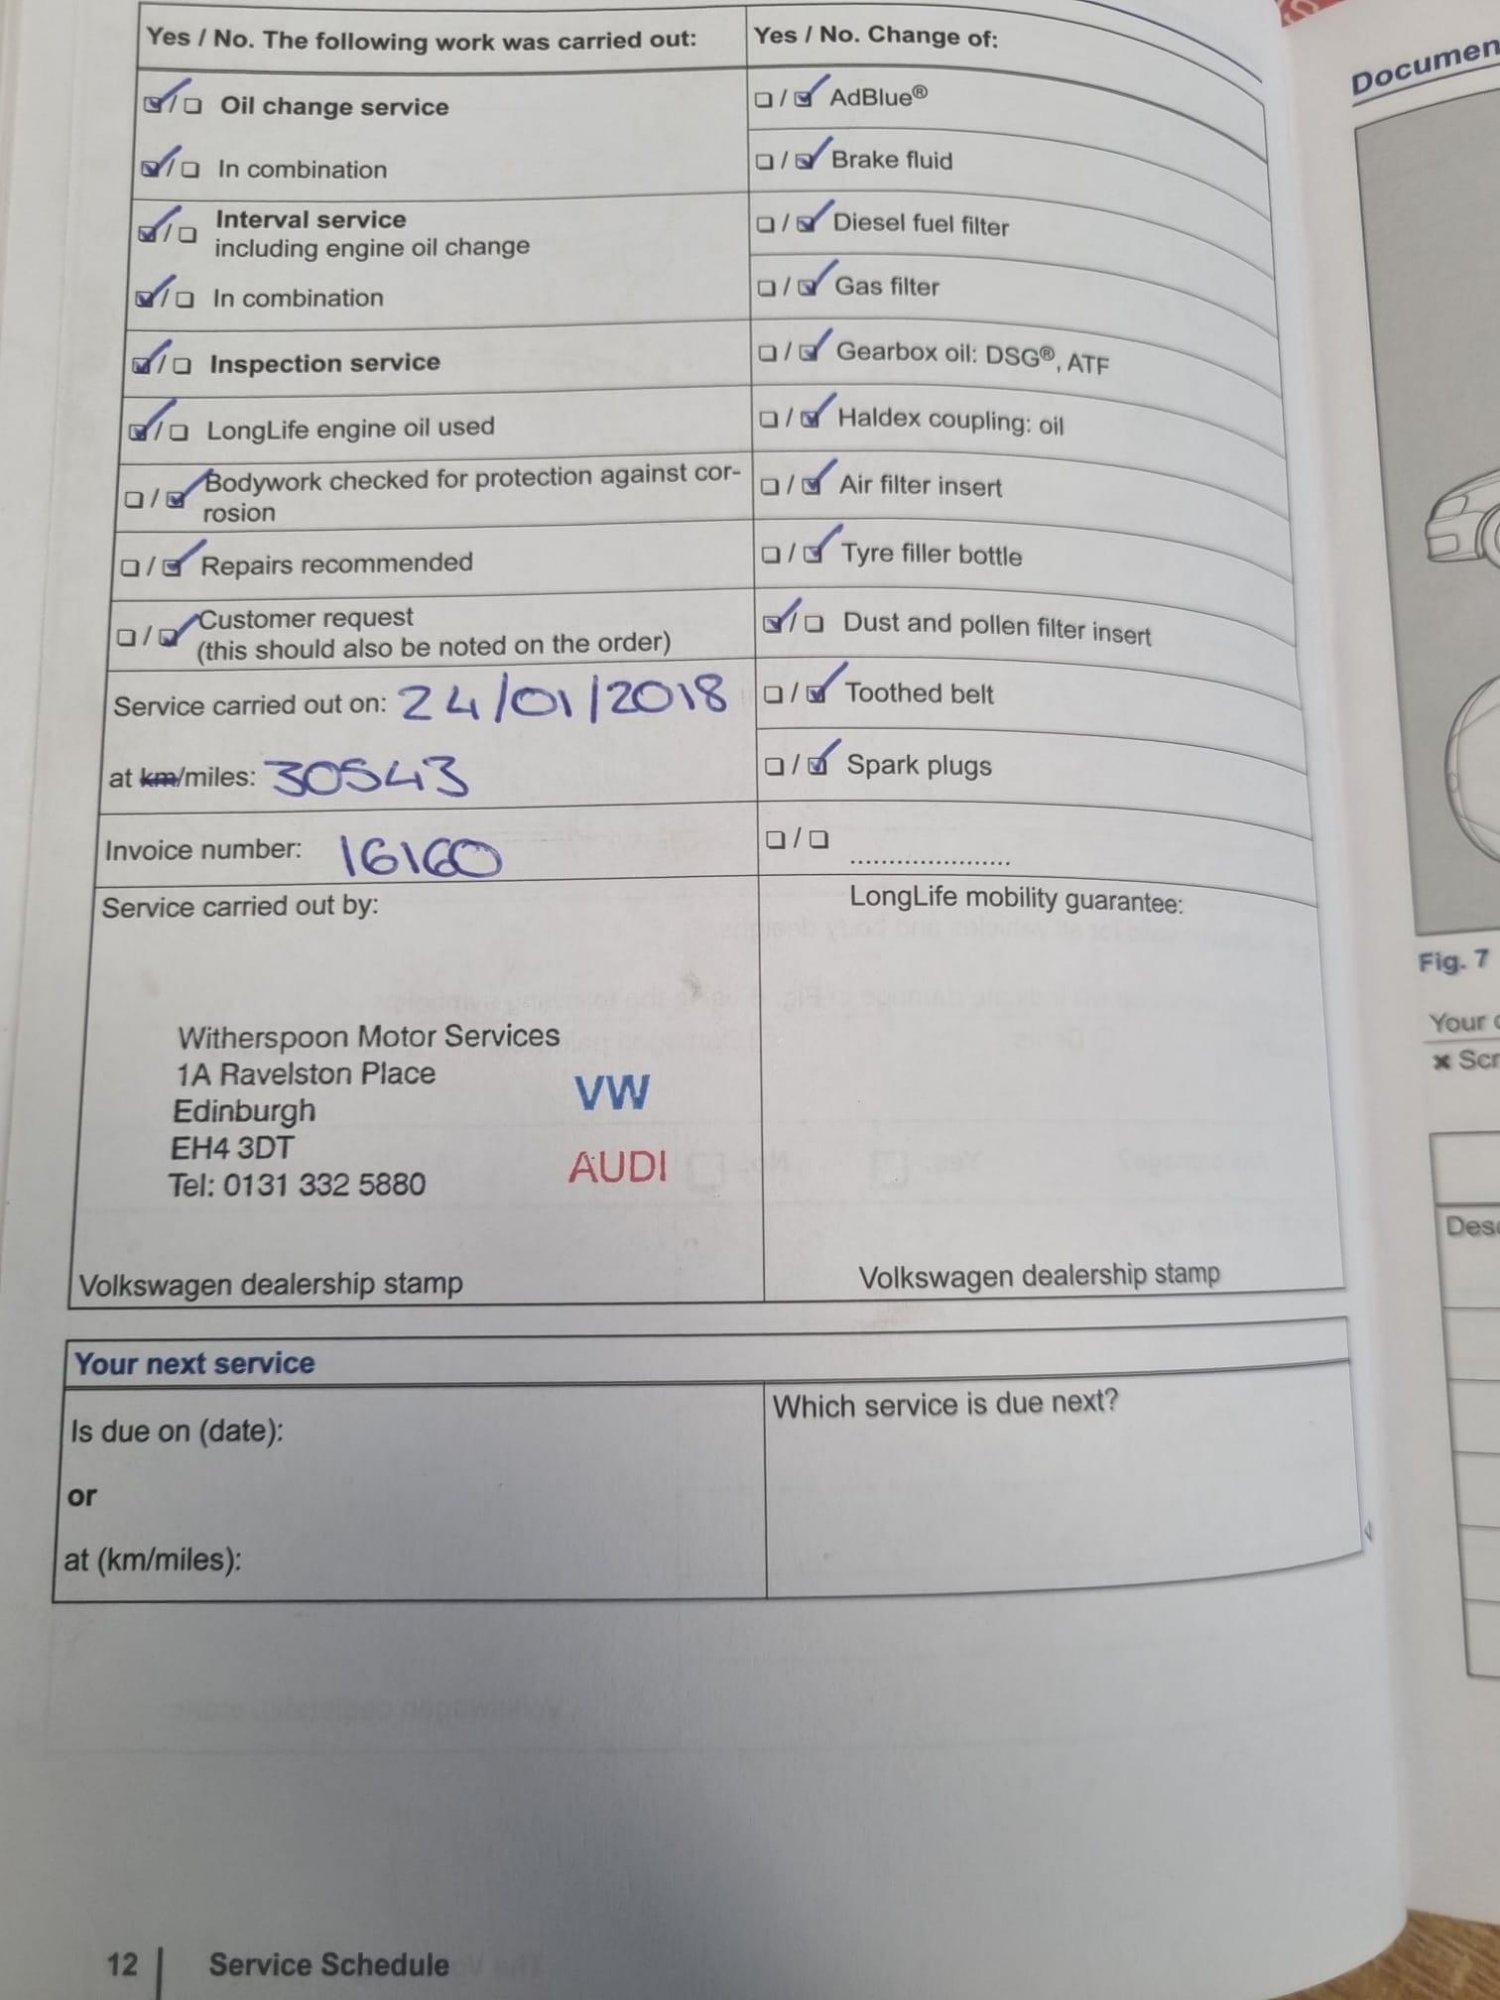 Yes / No. The following work was carried out:
☑/☐ Oil change service
☑/☐ In combination
☑/☐ Interval service
including engine oil change
☑/☐ In combination
☑/☐ Inspection service
☑/☐ LongLife engine oil used
☐/☑ Bodywork checked for protection against cor-
rosion
☐/☑ Repairs recommended
☐/☑ Customer request
(this should also be noted on the order)
Service carried out on: 24/01/2018
at km/miles: 30543
Invoice number: 16160
Yes / No. Change of:
☐/☑ AdBlue®
☐/☑ Brake fluid
☐/☑ Diesel fuel filter
☐/☑ Gas filter
☐/☑ Gearbox oil: DSG®, ATF
☐/☑ Haldex coupling: oil
☐/☑ Air filter insert
☐/☑ Tyre filler bottle
☑/☐ Dust and pollen filter insert
☐/☑ Toothed belt
☐/☑ Spark plugs
☐/☐ .....................
Service carried out by:
Witherspoon Motor Services
1A Ravelston Place
Edinburgh
EH4 3DT
Tel: 0131 332 5880
VW
AUDI
Volkswagen dealership stamp
LongLife mobility guarantee:
Volkswagen dealership stamp
Your next service
Is due on (date):
or
at (km/miles):
Which service is due next?
12 | Service Schedule
Fig. 7
Your